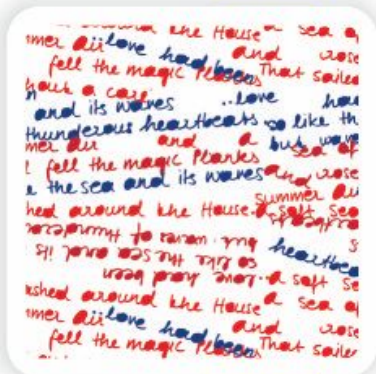 around the House a sea of
mmer air love had been and rose
fell the magic Planks That sailed
hout a care
and its waves ..love had
thunderous heartbeats so like th
mer air and a but wave
fell the magic Planks sea of
e the sea and its waves and rose
summer air
hed around the House. a soft sea
but. waves of thunderous
heartbea
so like the sea and its
..love had been a soft se
ashed around the House a sea o
mmer air love had been and rose
fell the magic Planks That sailed